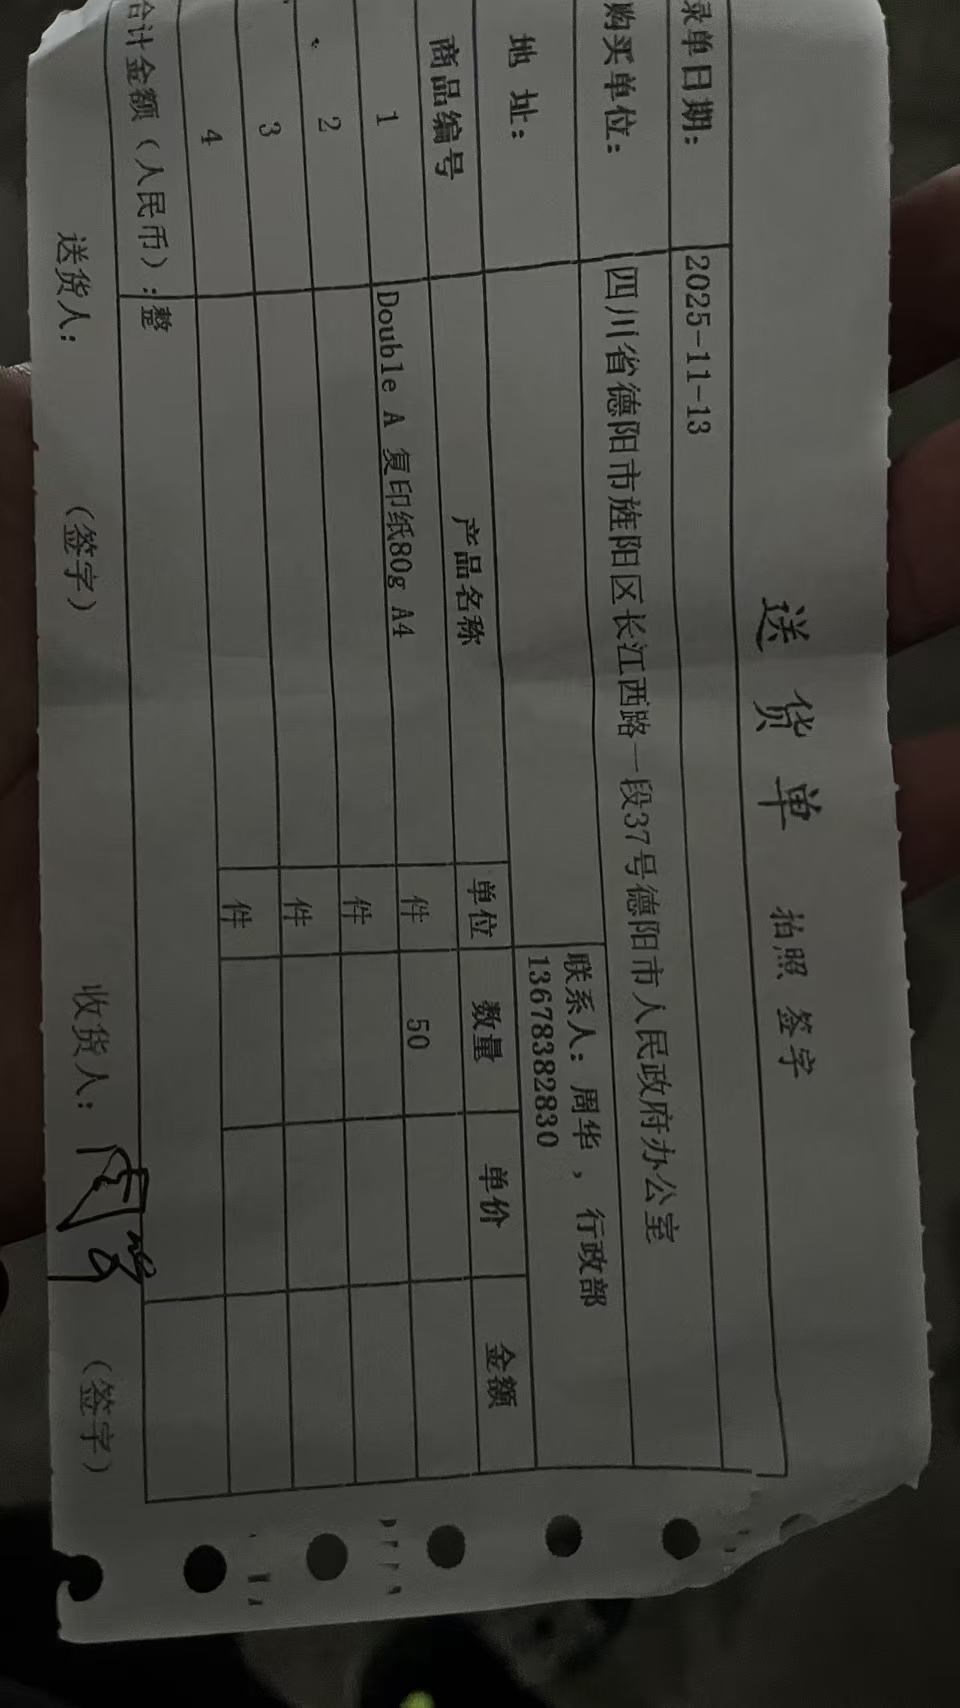 送货单 拍照 签字
录单日期： 2025-11-13
购买单位： 四川省德阳市旌阳区长江西路一段37号德阳市人民政府办公室
地 址： 联系人：周华，行政部
13678382830
商品编号 产品名称 单位 数量 单价 金额
1 Double A 复印纸80g A4 件 50
2 件
3 件
4 件
合计金额（人民币）：整
送货人： （签字） 收货人： （签字）